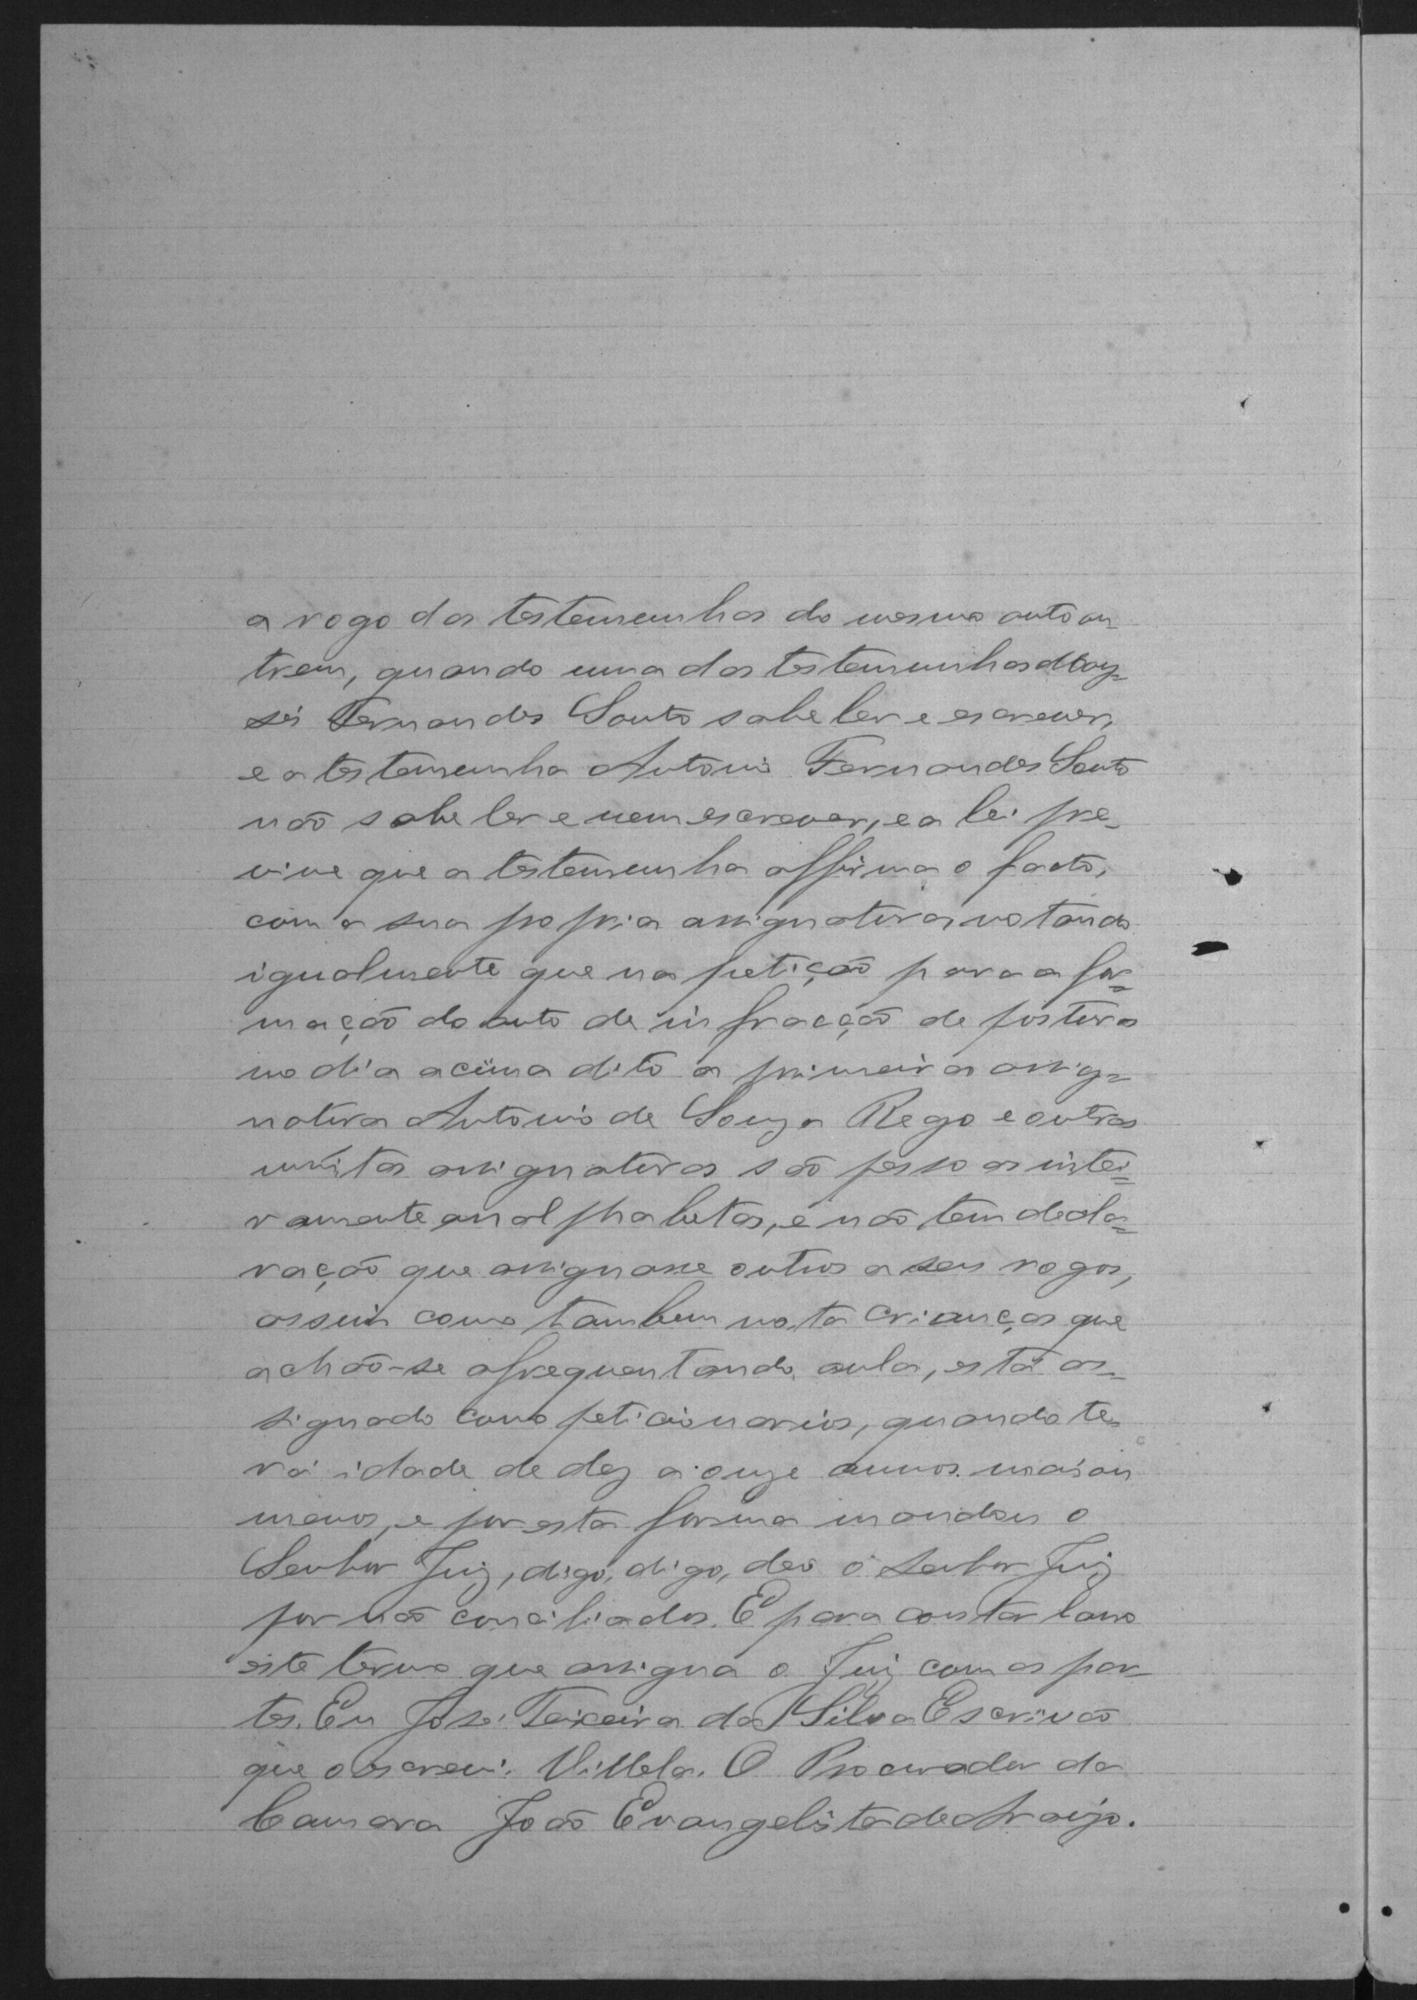 a rogo das testemunhas do mesmo auto ou
trem, quando uma das testemunhas Moy=
sés Fernandes Souto sabe ler e escrever,
e a testemunha Antonio Fernandes Souto
não sabe ler e nem escrever, e a lei pre-
vine que a testemunha affirma o facto,
com a sua propria assignatura notando
igualmente que na petição para a for=
mação do auto de infracção de postura
no dia acima dito a primeira assig=
natura Antonio de Souza Rego e outras
muitas assignaturas são pessoas intei=
ramente analphabetas, e não tem decla=
ração que assignasse outros a seus rogos,
assim como tambem nota crianças que
achão-se afrequentando aula, está as-
signado como peticionarios, quando te-
rá idade de dez a onze annos mais ou
menos, e por esta forma mandou o
Senhor Juiz, digo, digo, deo o Senhor Juiz
por não conciliados. E para constar lavro
este termo que assigna o Juiz com as par-
tes. Eu José Teixeira da Silva Escrivão
que o escrevi. Villela. O Procurador da
Camara João Evangelista de Araujo.